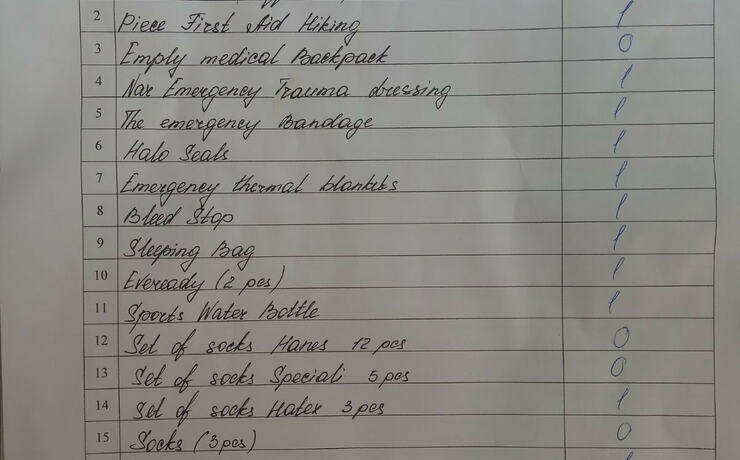 2 Piece First Aid Hiking 1
3 Emply medical Backpack 0
4 Nar Emergency Trauma dressing 1
5 The emergency Bandage 1
6 Halo Seals 1
7 Emergency thermal blankets 1
8 Bleed Stop 1
9 Sleeping Bag 1
10 Eveready (2 pcs) 1
11 Sports Water Bottle 1
12 Set of socks Hanes 12 pcs 0
13 Set of socks Speciali 5 pcs 0
14 Set of socks Hatex 3 pcs 1
15 Socks (3 pcs) 0